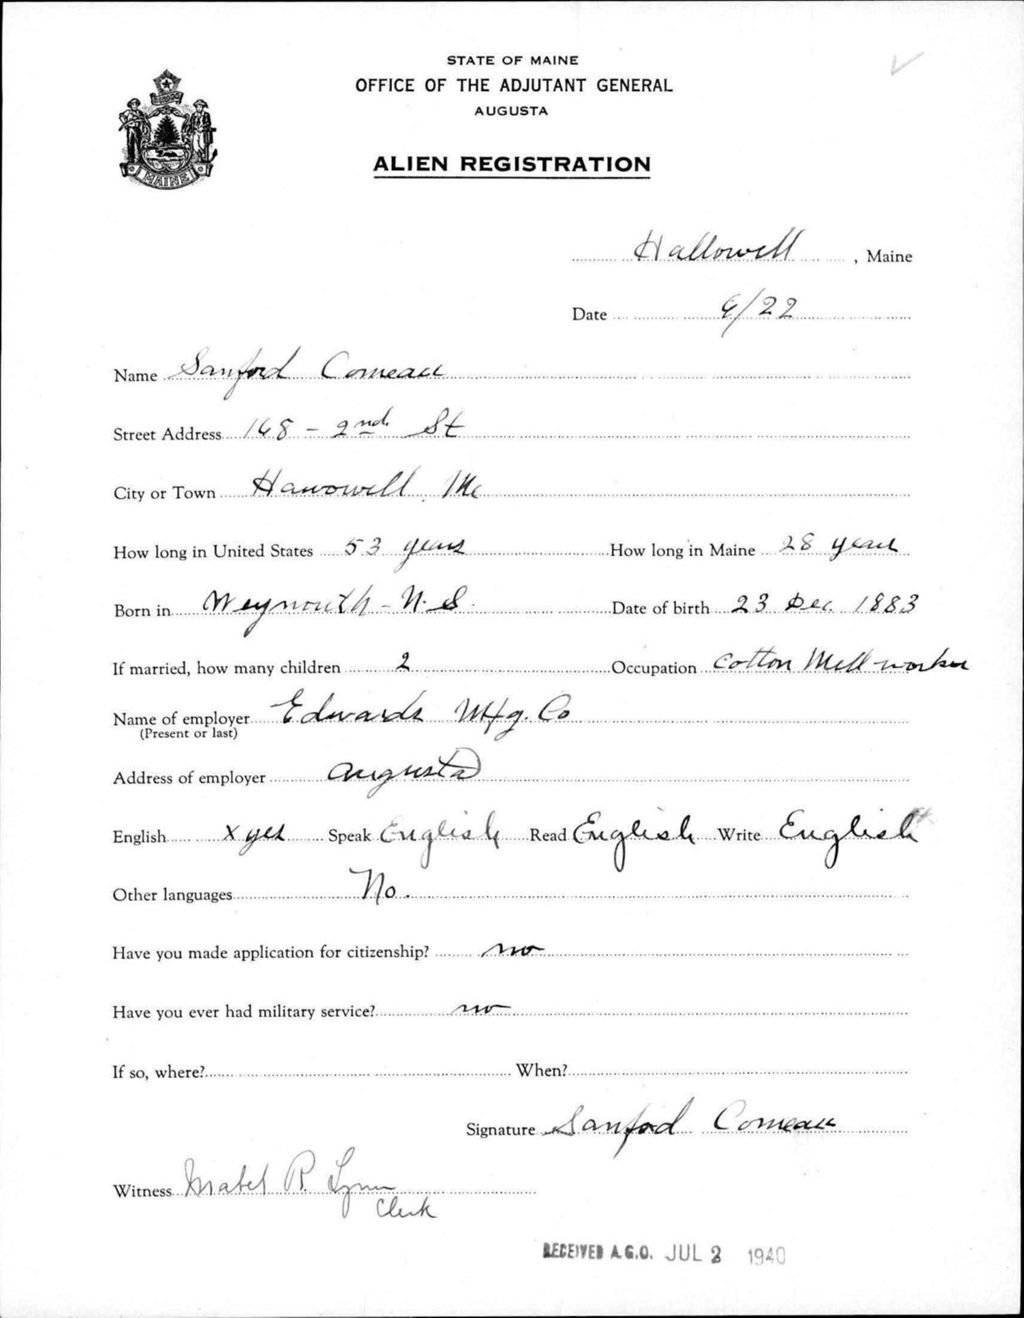 STATE OF MAINE
OFFICE OF THE ADJUTANT GENERAL
AUGUSTA
MAINE
ALIEN REGISTRATION
Hallowell, Maine
Date 6/22
Name Sanford Comeau
Street Address 168 - 2nd St
City or Town Hallowell, Me
How long in United States 53 years How long in Maine 28 years
Born in Weymouth - N.S. Date of birth 23 Dec. 1883
If married, how many children 2 Occupation Cotton Mill worker
Name of employer Edwards Mfg. Co
(Present or last)
Address of employer Augusta
English x yes Speak English Read English Write English
Other languages No.
Have you made application for citizenship? no
Have you ever had military service? no
If so, where? When?
Signature Sanford Comeau
Witness Mabel R. Lynn
Clerk
RECEIVED A.G.O. JUL 2 1940